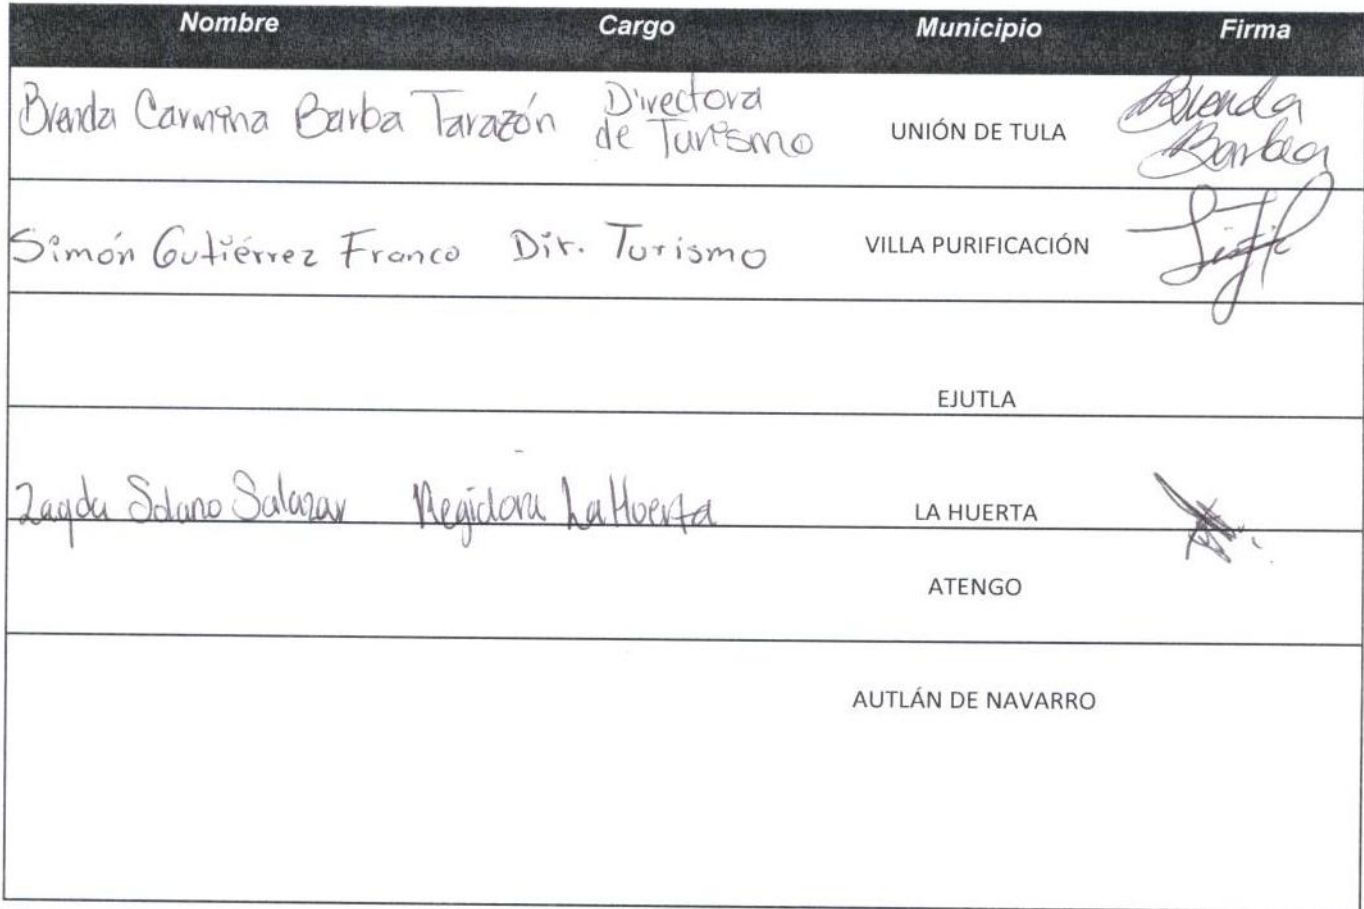 Nombre Cargo Municipio Firma
Brenda Carmina Barba Tarazón Directora de Turismo UNIÓN DE TULA Brenda Barba
Simón Gutiérrez Franco Dir. Turismo VILLA PURIFICACIÓN
EJUTLA
Zagda Solano Salazar Regidora La Huerta LA HUERTA
ATENGO
AUTLÁN DE NAVARRO